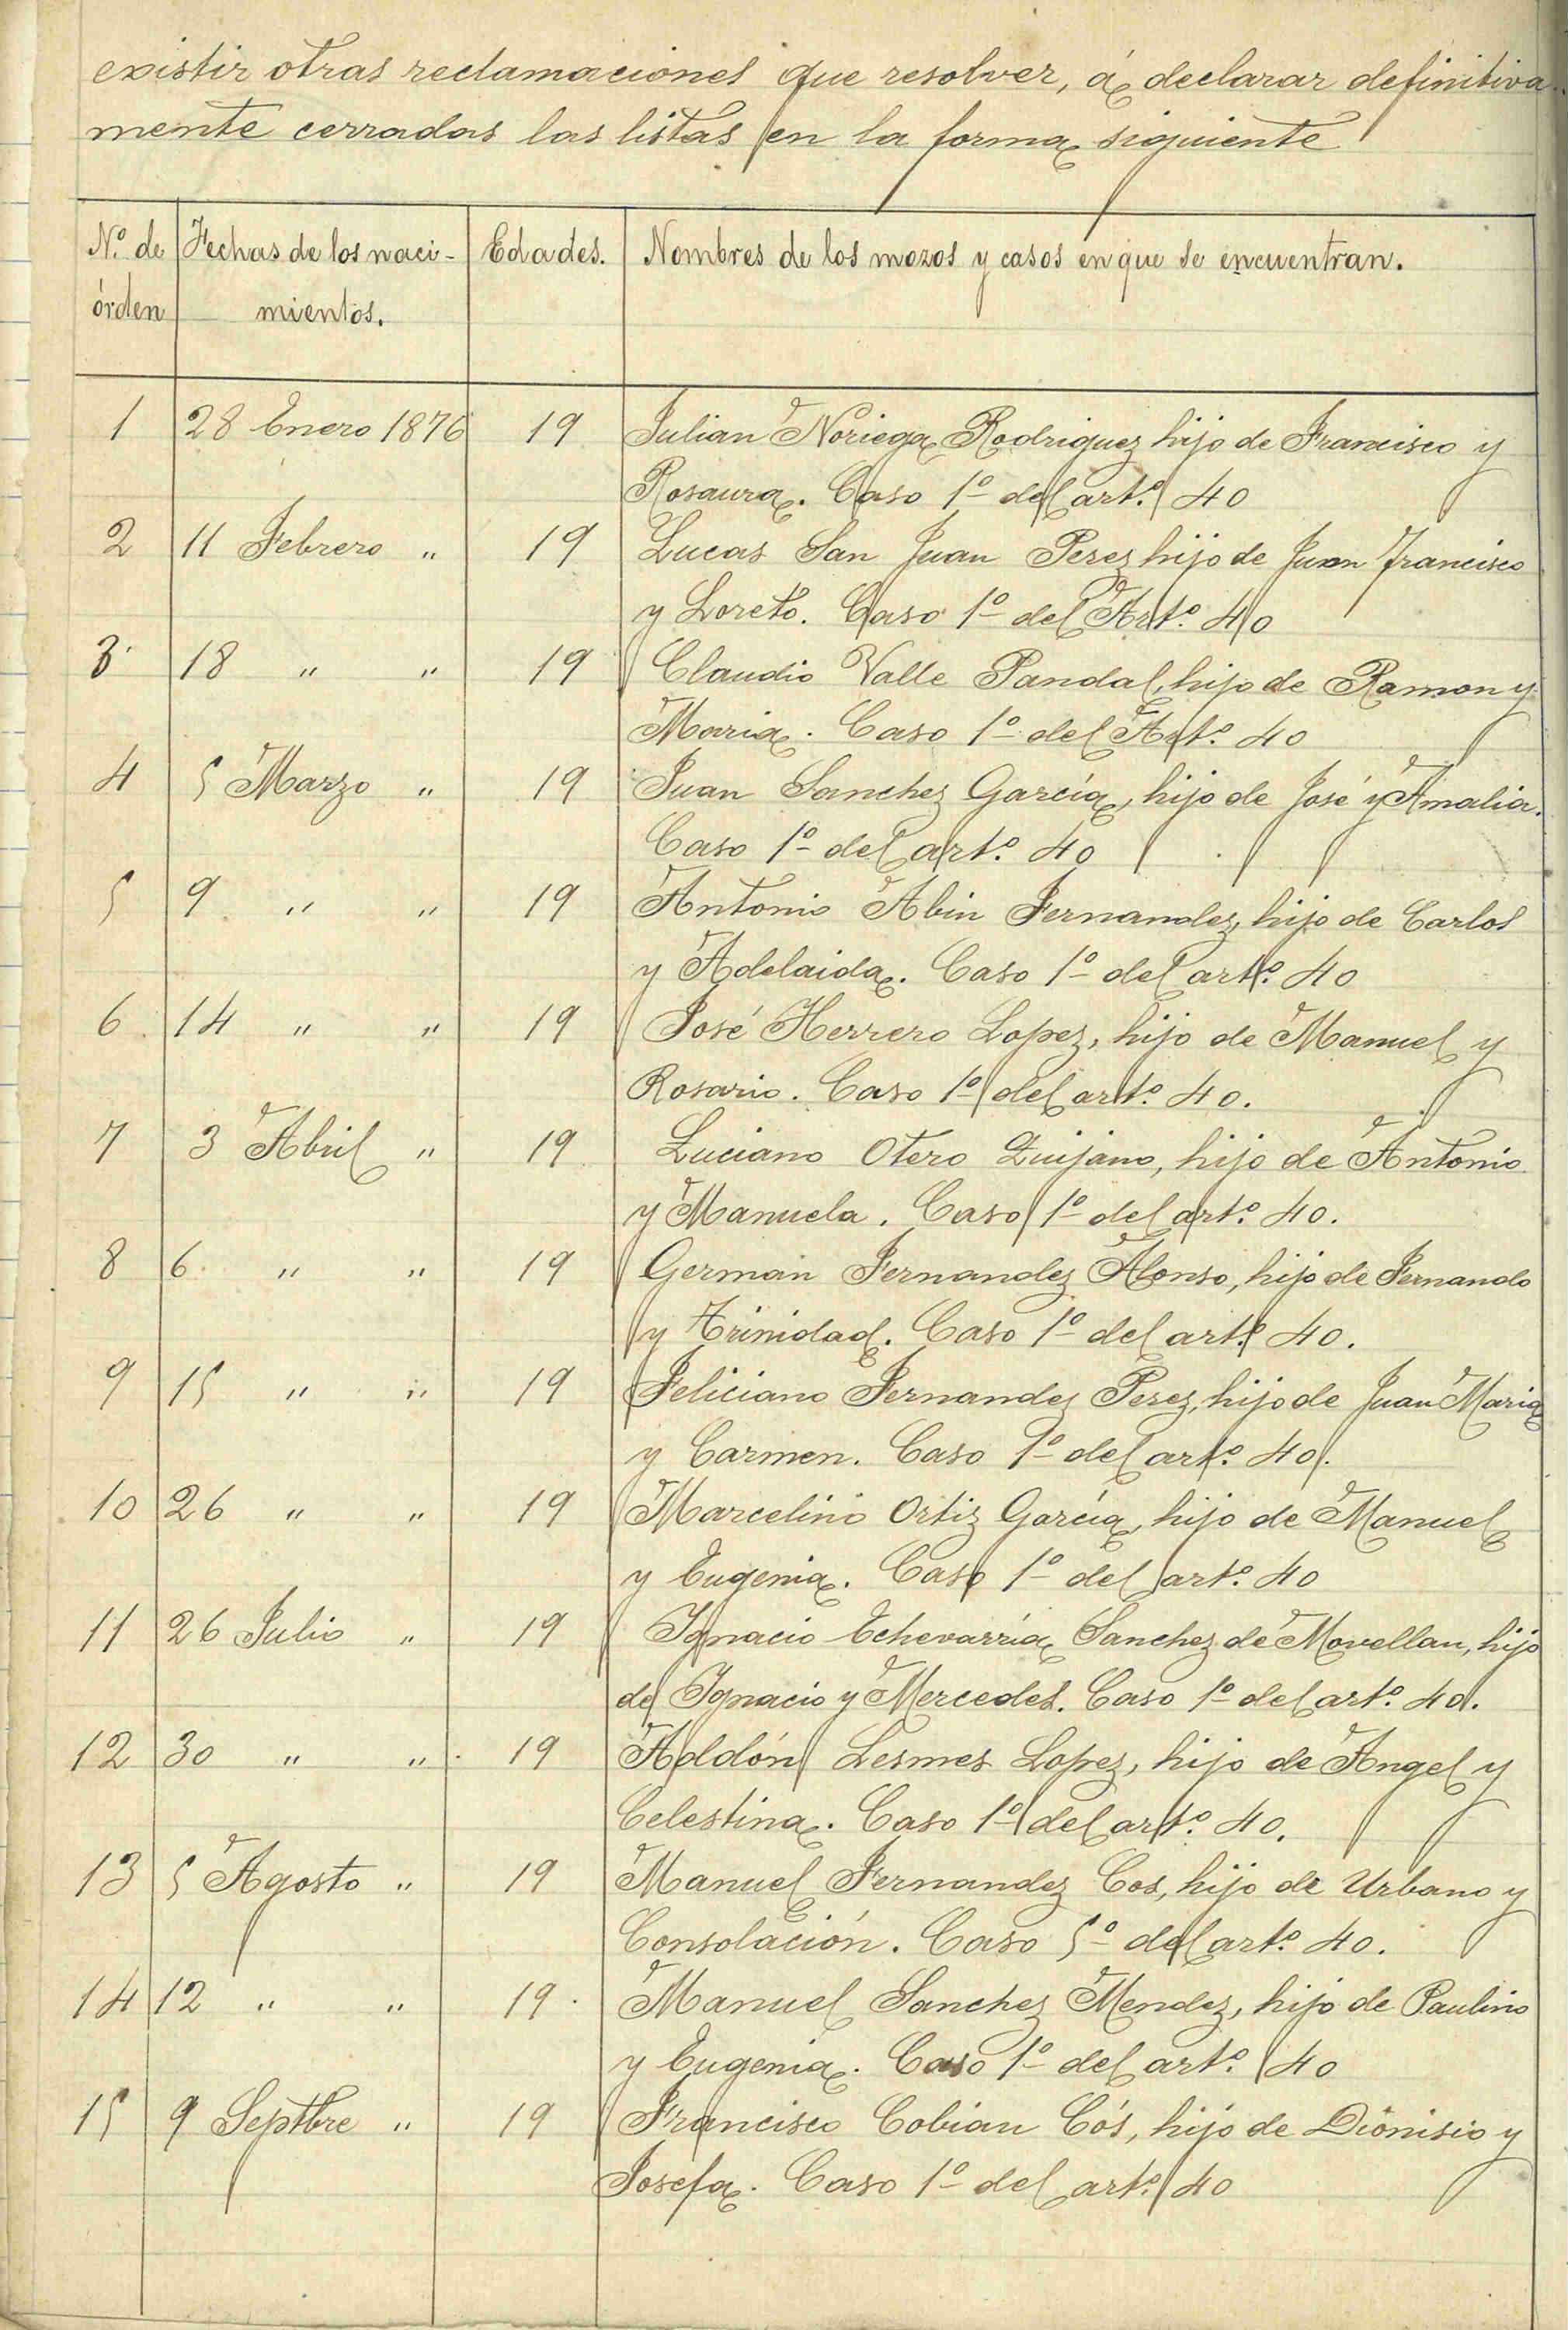 existir otras reclamaciones que resolver, á declarar definitiva
mente cerradas las listas en la forma siguiente
Nº. de Fechas de los naci- Edades. Nombres de los mozos y casos en que se encuentran.
órden mientos.
1 28 Enero 1876 19 Julian Noriega Rodriguez hijo de Francisco y
Rosaura. Caso 1º del artº. 40
2 11 Febrero " 19 Lucas San Juan Perez hijo de Juan Francisco
y Loreto. Caso 1º del Artº. 40
3 18 " " 19 Claudio Valle Pandal, hijo de Ramon y
Maria. Caso 1º del Artº. 40
4 5 Marzo " 19 Juan Sanchez García, hijo de José y Amalia.
Caso 1º del artº. 40
5 9 " " 19 Antonio Abin Fernandez, hijo de Carlos
y Adelaida. Caso 1º del artº. 40
6 14 " " 19 José Herrero Lopez, hijo de Manuel y
Rosario. Caso 1º del artº. 40.
7 3 Abril " 19 Luciano Otero Quijano, hijo de Antonio
y Manuela. Caso 1º del artº. 40.
8 6 " " 19 German Fernandez Alonso, hijo de Fernando
y Trinidad. Caso 1º del artº. 40.
9 15 " " 19 Feliciano Fernandez Perez, hijo de Juan Maria
y Carmen. Caso 1º del artº. 40.
10 26 " " 19 Marcelino Ortiz García, hijo de Manuel
y Eugenia. Caso 1º del artº. 40
11 26 Julio " 19 Ignacio Echevarría Sanchez de Movellan, hijo
de Ignacio y Mercedes. Caso 1º del artº. 40.
12 30 " " 19 Addón Lesmes Lopez, hijo de Angel y
Celestina. Caso 1º del artº. 40.
13 5 Agosto " 19 Manuel Fernandez Cos, hijo de Urbano y
Consolación. Caso 5º del artº. 40.
14 12 " " 19 Manuel Sanchez Mendez, hijo de Paulino
y Eugenia. Caso 1º del artº. 40
15 9 Septbre " 19 Francisco Cobian Cós, hijo de Dionisio y
Josefa. Caso 1º del artº. 40